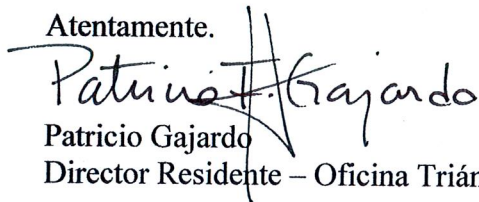 Atentamente.
Patricio F. Gajardo
Patricio Gajardo
Director Residente – Oficina Trián